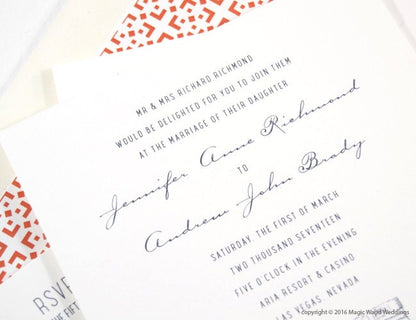 MR & MRS RICHARD RICHMOND
WOULD BE DELIGHTED FOR YOU TO JOIN THEM
AT THE MARRIAGE OF THEIR DAUGHTER
Jennifer Anne Richmond
TO
Andrew John Brady
SATURDAY, THE FIRST OF MARCH
TWO THOUSAND SEVENTEEN
FIVE O'CLOCK IN THE EVENING
ARIA RESORT & CASINO
LAS VEGAS, NEVADA
RSVP
THE FIFT
copyright © 2016 Magic Wand Weddings